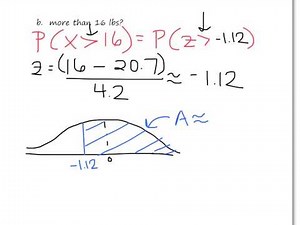 b. more than 16 lbs?
P(x>16) = P(z>-1.12)
z = (16 - 20.7) / 4.2 ≈ -1.12
A ≈
-1.12 0